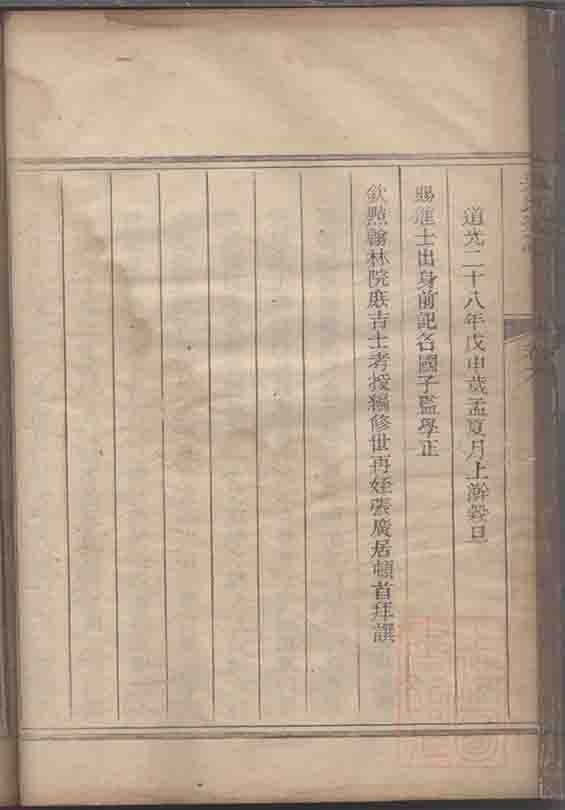 道光二十八年戊申歲孟夏月上澣穀旦
賜進士出身前記名國子監學正
欽點翰林院庶吉士考授編修世再姪張廣居頓首拜譔